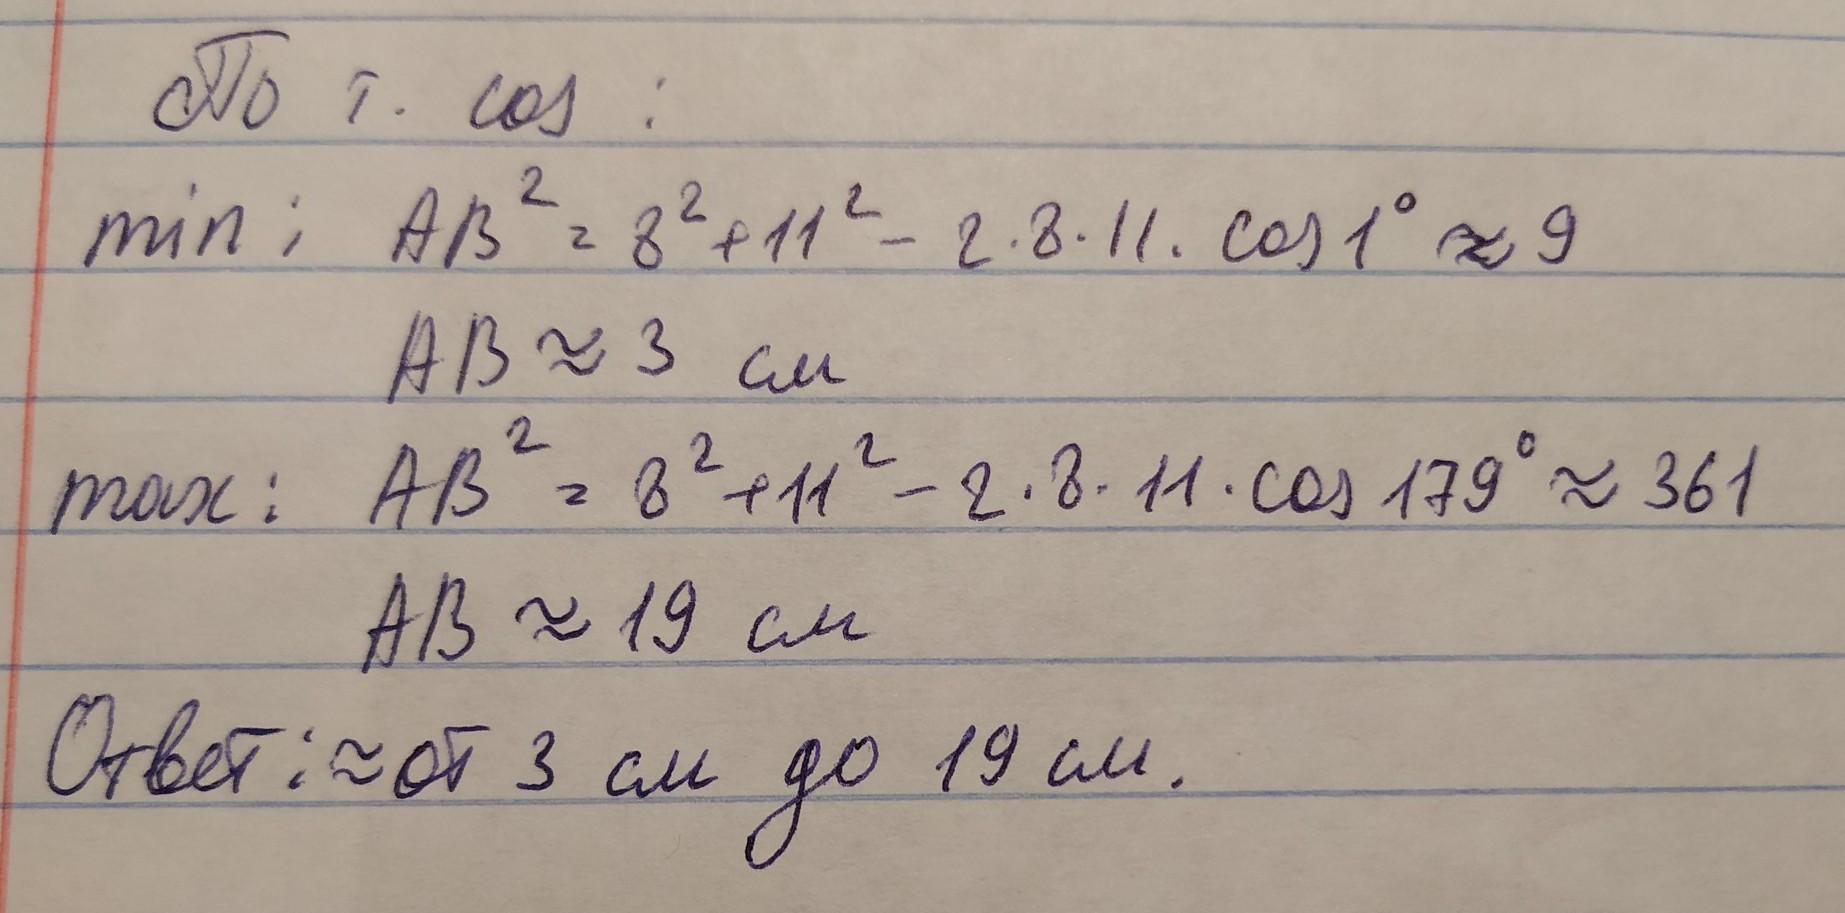 По т. cos :
min: AB² = 8² + 11² - 2 · 8 · 11 · cos 1° ≈ 9
AB ≈ 3 см
max: AB² = 8² + 11² - 2 · 8 · 11 · cos 179° ≈ 361
AB ≈ 19 см
Ответ: ≈ от 3 см до 19 см.